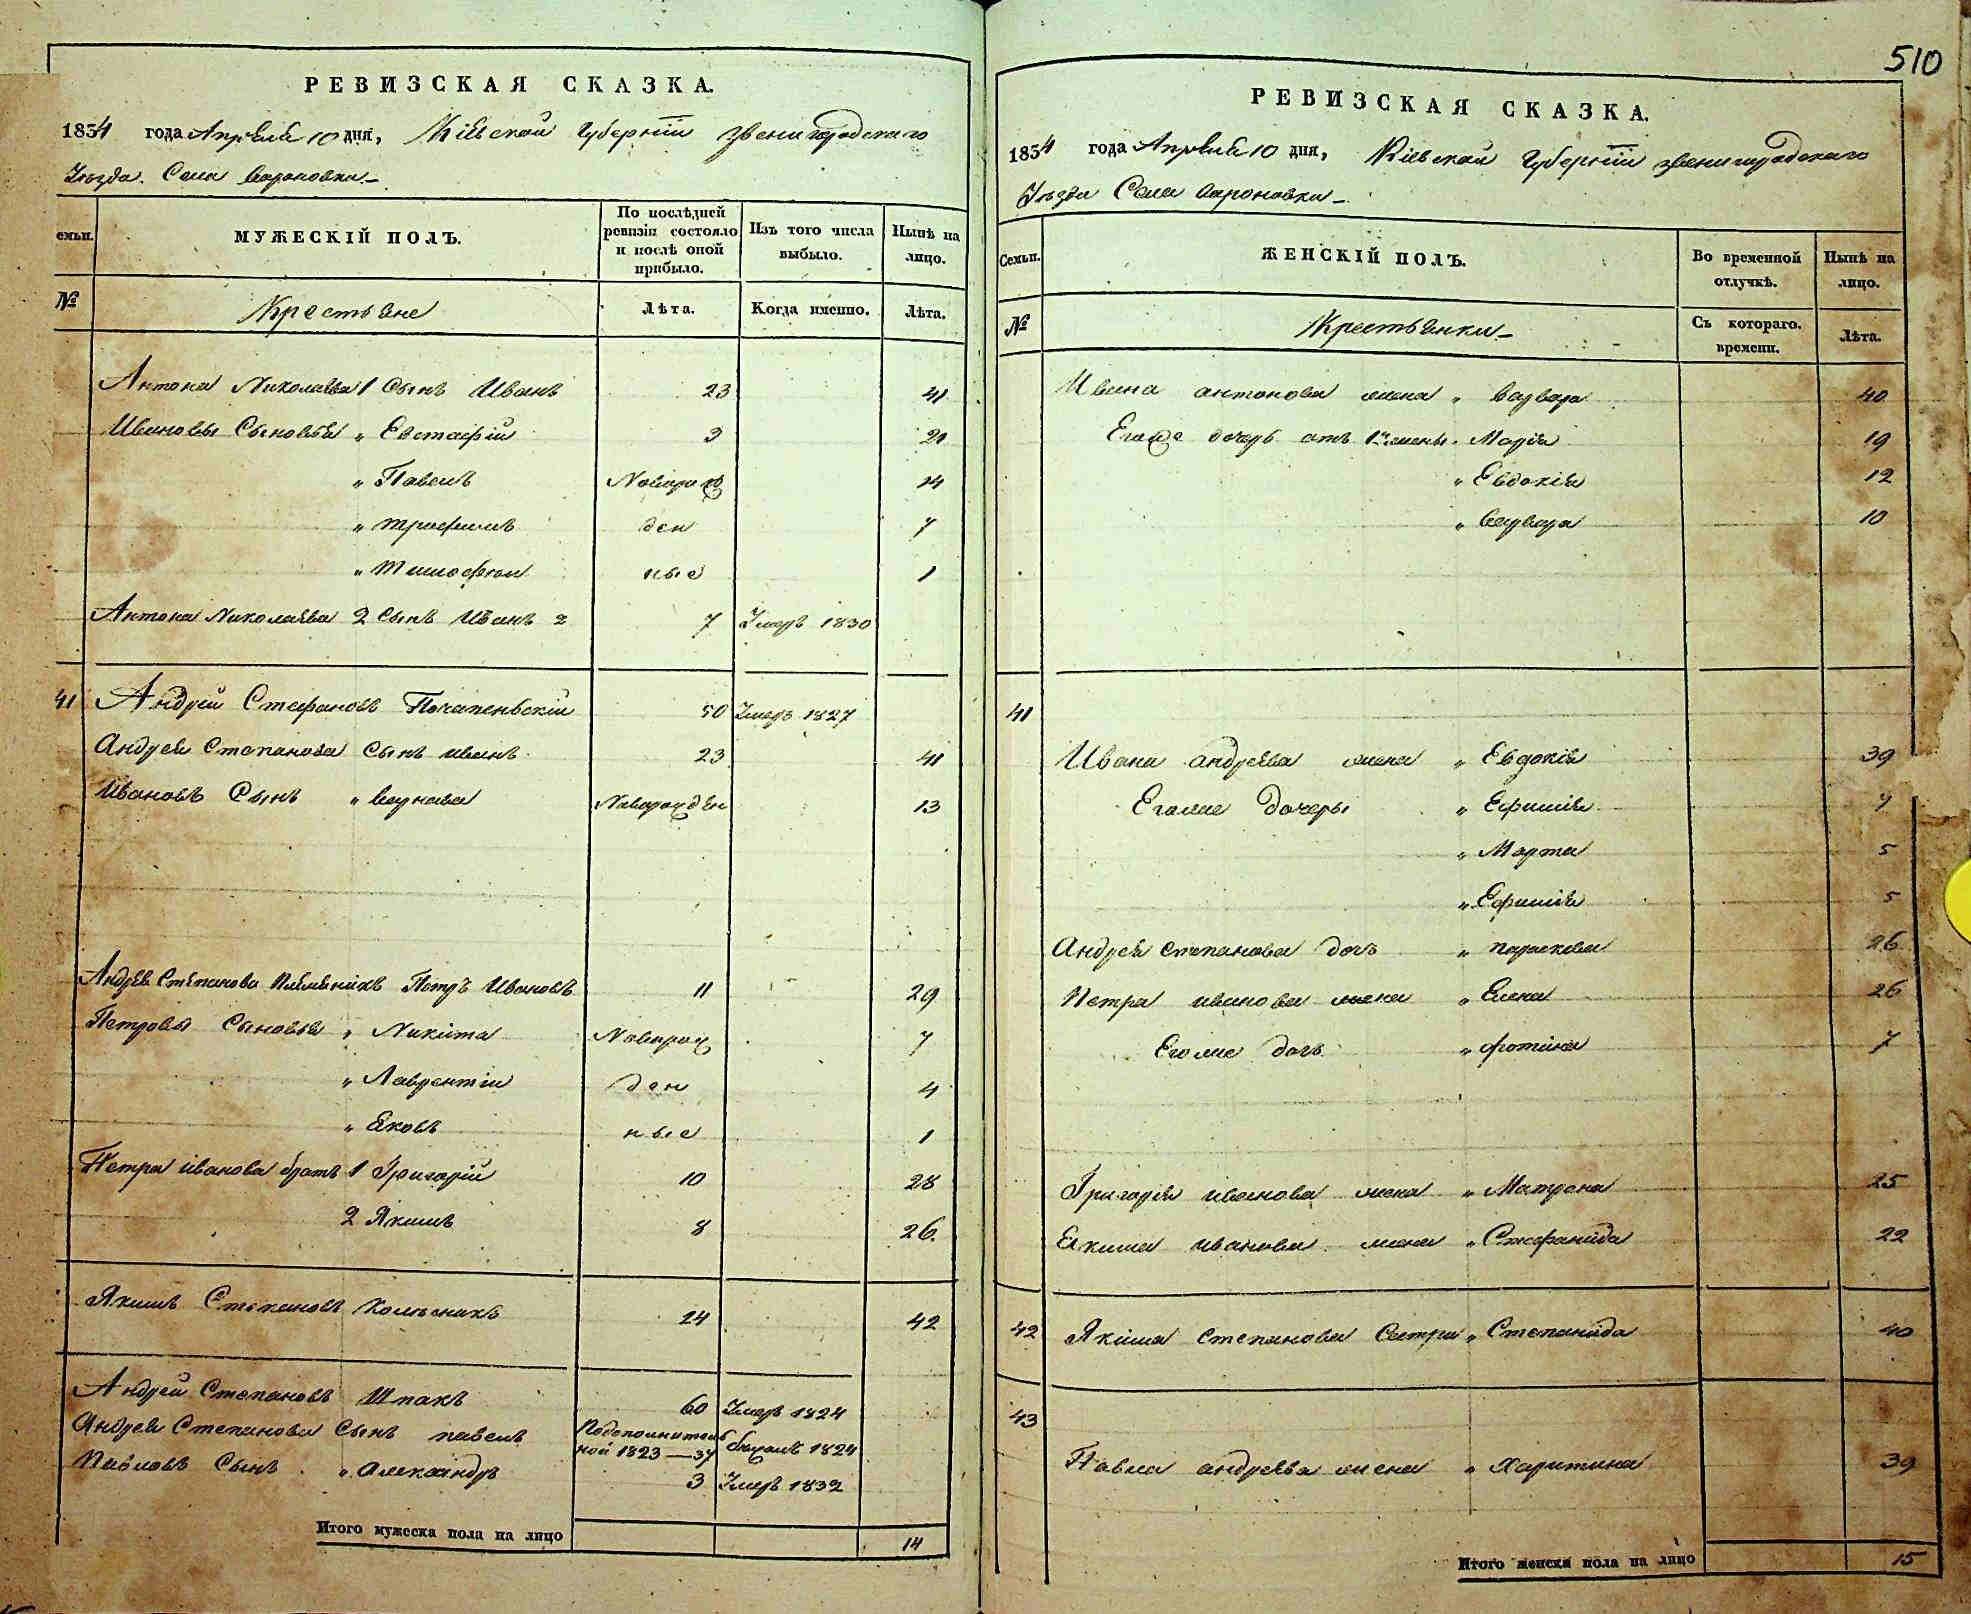 РЕВИЗСКАЯ СКАЗКА.
1834 года Апреля 10 дня, Кіевской Губерніи Звенигородского
Уезда Села Вороновки
семьи.
МУЖЕСКІЙ ПОЛЪ.
По послѣдней ревизіи состояло и послѣ оной прибыло.
Изъ того числа выбыло.
Нынѣ на лицо.
№
Крестьяне
Лѣта.
Когда именно.
Лѣта.
Антона Николаева 1 Сынъ Иванъ 23 41
Ивановы Сыновья „ Евстафій 3 21
„ ПавелъНоворож 14
„ Трофимъ ден 7
„ Тимофей ные 1
Антона Николаева 2 Сынъ Иванъ 2 7 Умеръ 1830
41 Андрей Стефановъ Почапеньскій 50 Умеръ 1827
Андрея Степанова Сынъ Иванъ 23 41
Ивановъ Сынъ „ Варнава Новорожден 13
Андрея Степанова Племяникъ Петръ Ивановъ 11 29
Петровы Сыновья „ Никита Новорож 7
„ Лаврентій ден 4
„ Яковъ ные 1
Петра Иванова братъ 1 Григорій 10 28
2 Якимъ 8 26.
Якимъ Степановъ Колесникъ 24 42
Андрей Степановъ Шпакъ 60 Умеръ 1824
Андрея Степанова Сынъ Павелъ Подополнитель
ной 1823 — 37 1824
Павловъ Сынъ „ Александръ 3 Умеръ 1832
Итого мужеска пола на лицо 14
510
РЕВИЗСКАЯ СКАЗКА.
1834 года Апреля 10 дня, Кіевской Губерніи Звенигородского
Уезда Села Вороновки
Семьи.
ЖЕНСКІЙ ПОЛЪ.
Во временной отлучкѣ.
Нынѣ на лицо.
№
Крестьянки
Съ котораго. времени.
Лѣта.
Ивана Антонова жена „ Варвара 40
Егоже дочерь отъ 1й жены „ Марія 19
„ Евдокія 12
„ Варвара 10
41
Ивана Андреева жена „ Евдокія 39
Егоже Дочеры „ Ефимія 7
„ Марта 5
„ Ефимія 5
Андрея Степанова дочь „ Параскева 26
Петра Иванова жена „ Елена 26
Егоже дочь „ Фотина 7
Григорія Иванова жена „ Матрона 25
Екима Иванова жена „ Стефанида 22
42 Якима Степанова Сестра „ Степанида 40
43
Павла Андреева жена „ Харитина 39
Итого женска пола на лицо 15